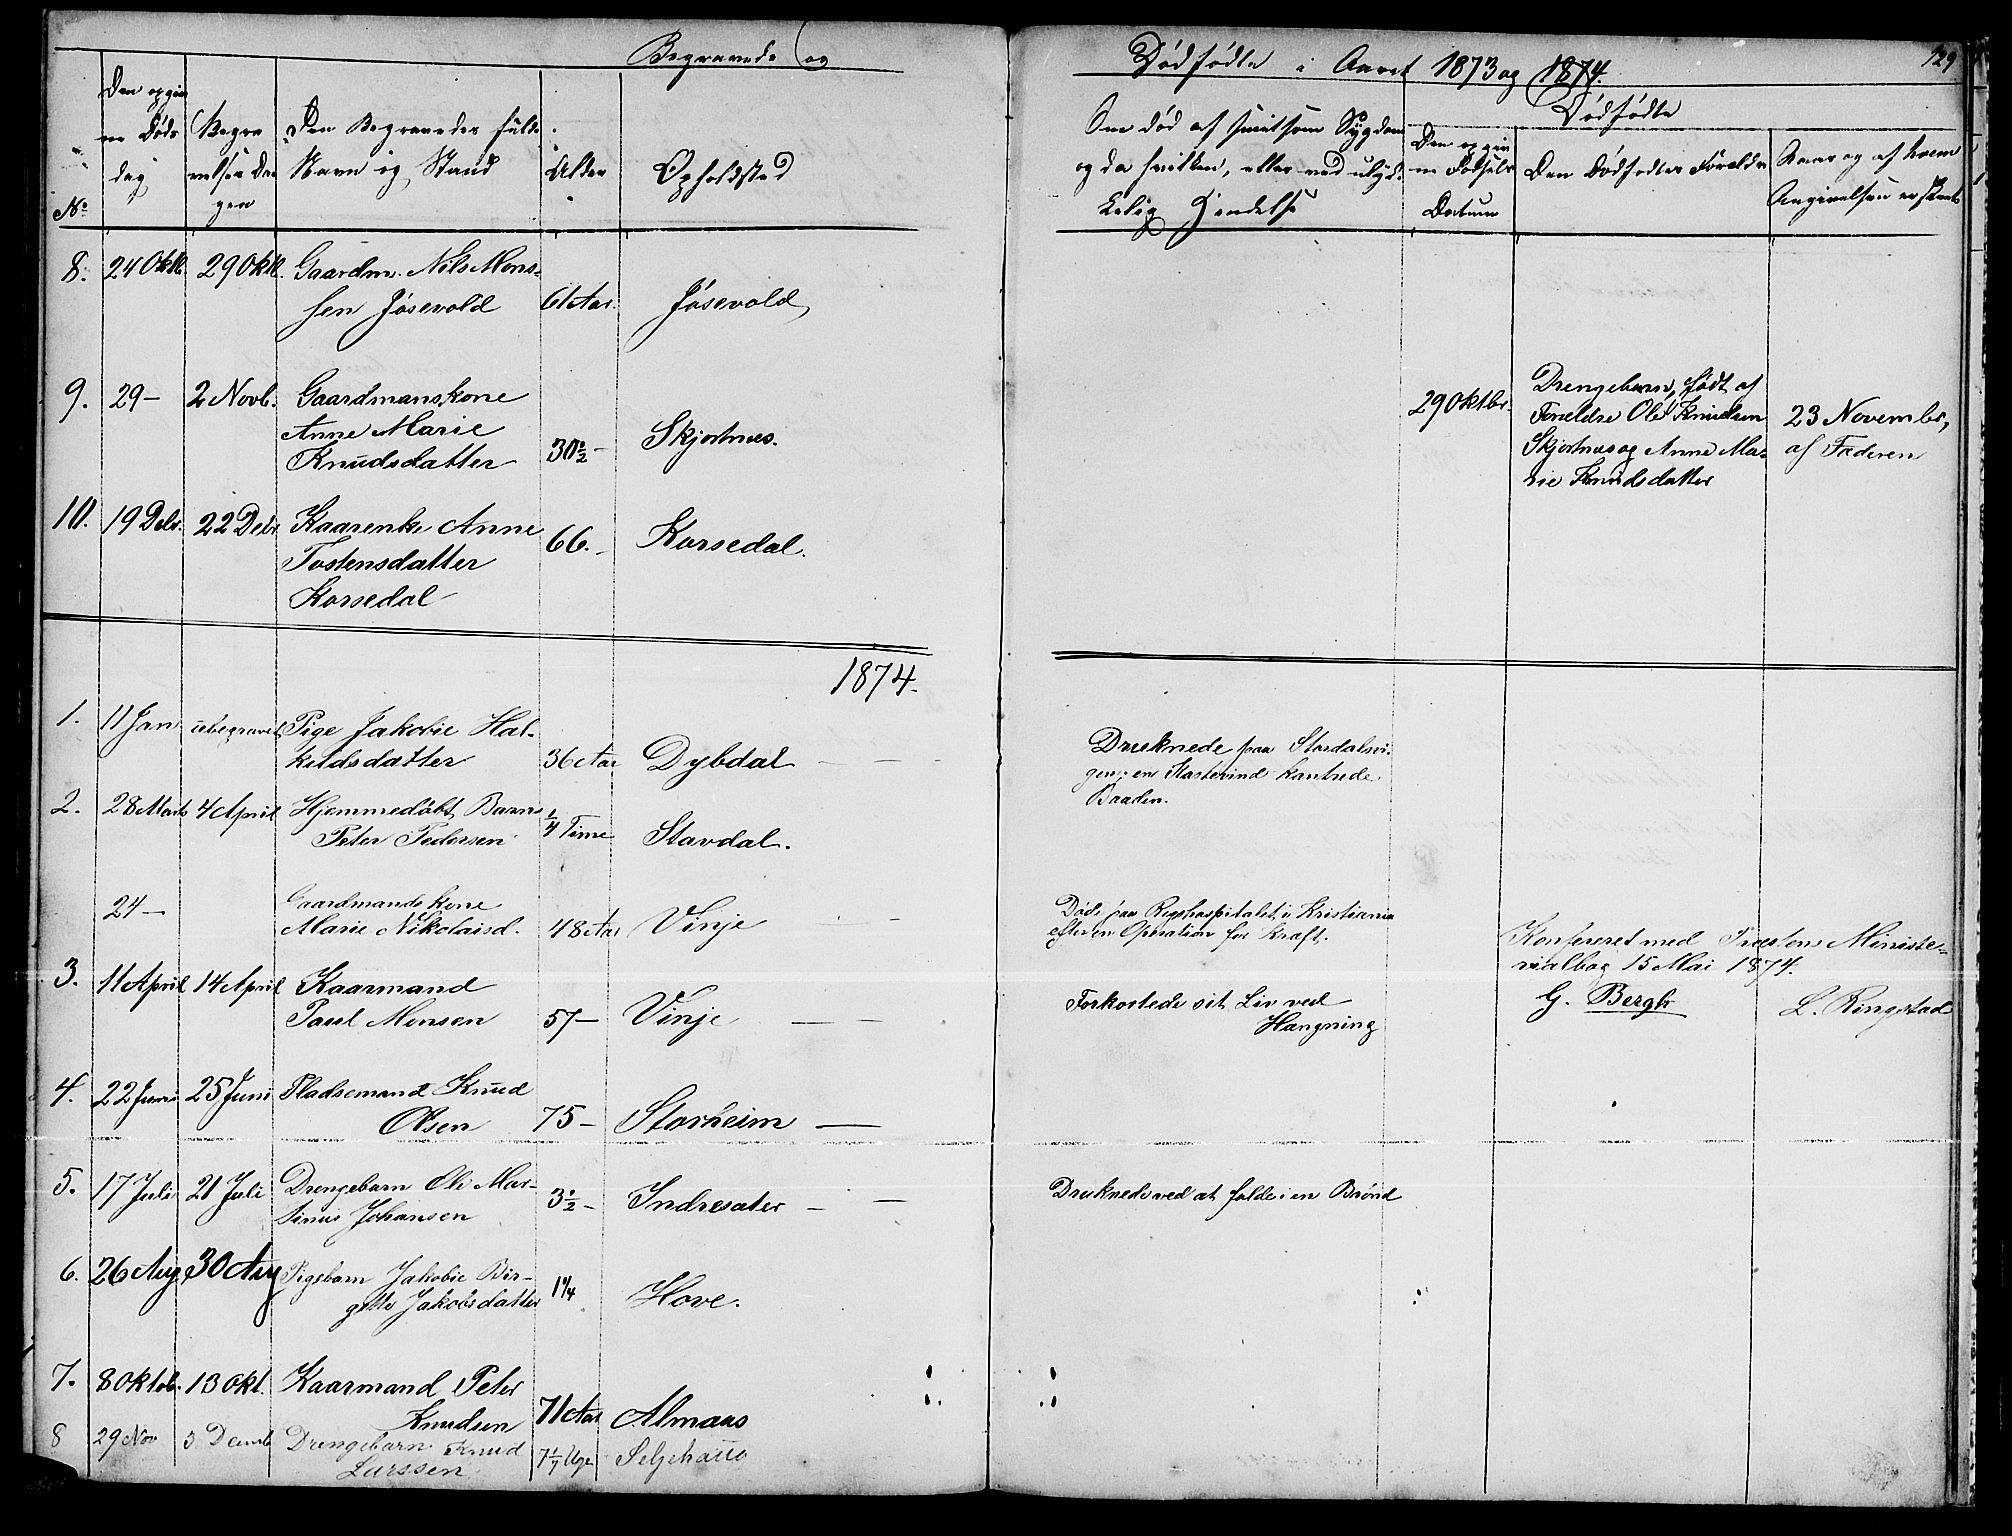 Begravede og
Dødfødte i Aaret 1873 og 1874.
129
No
Den opgiv
ne Døds
dag
Begra
velses Da
gen
Den Begravedes fulde
Navn og Stand
Alder
Opholdsted
Om død af smitsom Sygdom
og da hvilken, eller ved ulyk-
kelig Hændelse
Dødfødte
Den opgiv
ne Fødsels
Datum
Den Dødfødtes Forældre
Naar og af hvem
Angivelsen er skeet
8. 24 Oktb. 29 Oktb. Gaardm. Nils Mons-
sen Jøsevold 61 Aar. Jøsevold
9. 29 - 2 Novb. Gaardmanskone
Anne Marie
Knudsdatter 30½ - Skjortnæs.
29 Oktbr.
Drengebarn, født af
Foreldre Ole Knudsen
Skjortnæs og Anne Ma-
rie Knudsdatter
23 November,
af Faderen
10. 19 Debr. 22 Debr. Kaarenke Anne
Tostensdatter
Korsedal 66. - Korsedal.
1874.
1. 11 Jan ubegravet Pige Jakobie Hal-
kildsdatter 36 Aar Dybdal
Druknede paa Stordalsvi-
gen; en Kastevind kantrede
Baaden.
2. 28 Marts 4 April Hjemmedøbt Barn
Peter Pedersen ¼ Time Stavdal.
24 - Gaardmandskone
Marie Nikolaisd. 48 Aar Vinje
Døde paa Rigshospitalet i Kristiania
efter en Operation for Kræft.
3. 11 April 14 April Kaarmand
Paul Monsen 57 - Vinje
Forkortede sit Liv ved
Hængning
Konfereret med Præstens Ministe-
rialbog 15 Mai 1874.
G. Bergh L. Ringstad
4. 22 Juni 25 Juni Pladsemand Knud
Olsen 75 - Storheim
5. 17 Juli 21 Juli Drengebarn Ole Mar-
tinus Johansen 3½ - Indresæter
Druknede ved at falde i en Brønd
6. 26 Aug 30 Aug Pigebarn Jakobie Bir-
gitte Jakobsdatter 1¼ Hove.
7. 8 Oktob. 13 Okt. Kaarmand Peter
Knudsen 71 Aar Almaas
8 29 Nov 3 Decmb Drengebarn Knud
Larssen 7 1/7 Uge Seljehaug